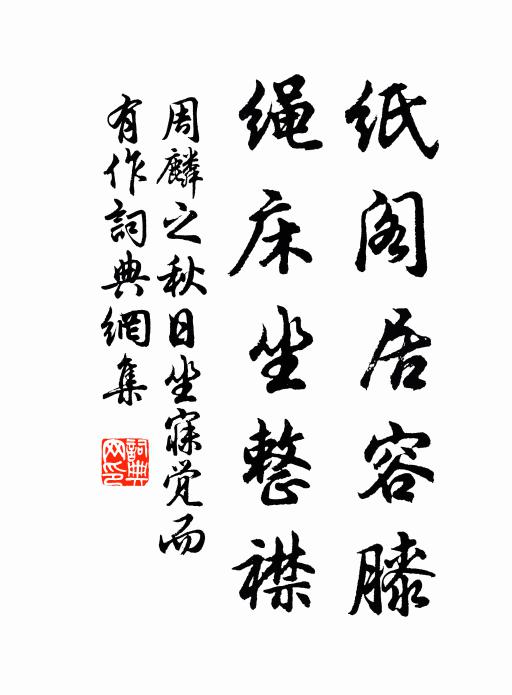 纸阁居容膝
绳床坐整襟
周麟之秋日坐寐觉而
有作词典網集
詞典网印